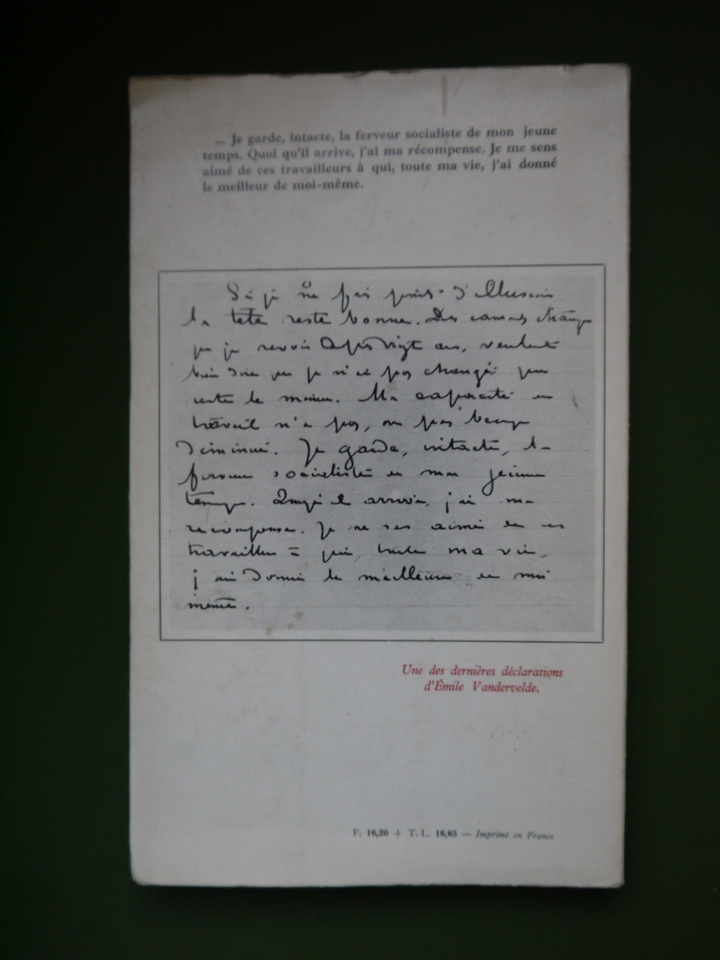 ... Je garde, intacte, la ferveur socialiste de mon jeune
temps. Quoi qu'il arrive, j'ai ma récompense. Je me sens
aimé de ces travailleurs à qui, toute ma vie, j'ai donné
le meilleur de moi-même.
Si je ne fais point d'illusions
la tête reste bonne. Des camarades
que je revois après vingt ans, veulent
bien dire que je n'ai pas changé
reste le même. Ma capacité de
travail n'a pas, ou pas beaucoup
diminué. Je garde, intacte, la
ferveur socialiste de mon jeune
temps. Quoiqu'il arrive, j'ai ma
récompense. Je me sens aimé de ces
travailleurs à qui, toute ma vie,
j'ai donné le meilleur de moi
même.
Une des dernières déclarations
d'Émile Vandervelde.
F. 16,20 + T. L. 16,65 — Imprimé en France